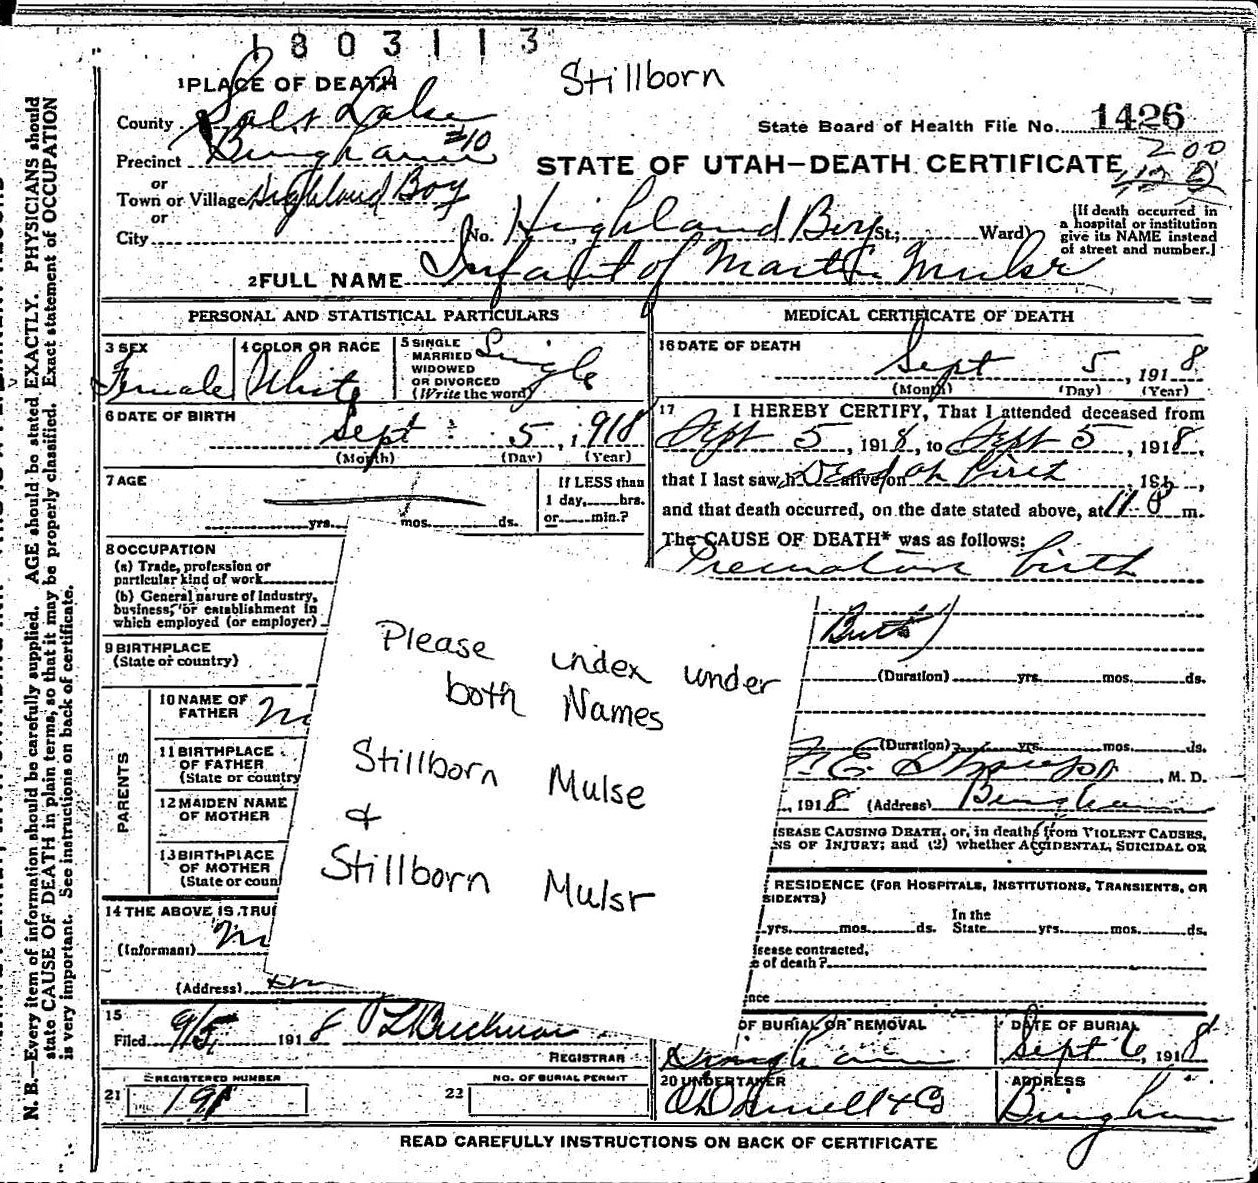 1803113
Stillborn
1 PLACE OF DEATH
County Salt Lake
State Board of Health File No. 1426
Precinct Bingham #10
200
STATE OF UTAH—DEATH CERTIFICATE
or
Town or Village Highland Boy
or
City
No. Highland Boy St.; Ward)
[If death occurred in
a hospital or institution
give its NAME instead
of street and number.]
2 FULL NAME Infant of Martin Mulsr
PERSONAL AND STATISTICAL PARTICULARS
3 SEX
Female
4 COLOR OR RACE
White
5 SINGLE
MARRIED
WIDOWED
OR DIVORCED
(Write the word)
Single
6 DATE OF BIRTH
Sept 5, 1918
(Month) (Day) (Year)
7 AGE
yrs. mos. ds.
If LESS than
1 day, hrs.
or min.?
8 OCCUPATION
(a) Trade, profession or
particular kind of work
(b) General nature of Industry,
business, or establishment in
which employed (or employer)
9 BIRTHPLACE
(State or country)
PARENTS
10 NAME OF
FATHER
11 BIRTHPLACE
OF FATHER
(State or country
12 MAIDEN NAME
OF MOTHER
13 BIRTHPLACE
OF MOTHER
(State or coun
14 THE ABOVE IS TRU
(Informant)
(Address)
15
Filed 9/5, 1918
REGISTRAR
REGISTERED NUMBER
21 191
NO. OF BURIAL PERMIT
22
MEDICAL CERTIFICATE OF DEATH
16 DATE OF DEATH
Sept 5, 1918
(Month) (Day) (Year)
17 I HEREBY CERTIFY, That I attended deceased from
Sept 5, 1918, to Sept 5, 1918,
that I last saw h Dead at birth alive on , 191 ,
and that death occurred, on the date stated above, at m.
The CAUSE OF DEATH* was as follows:
Premature birth
Birth)
(Duration) yrs. mos. ds.
(Duration) yrs. mos. ds.
, M. D.
, 1918 (Address) Bingham
SEASE CAUSING DEATH, or, in deaths from VIOLENT CAUSES,
NS OF INJURY; and (2) whether ACCIDENTAL, SUICIDAL OR
RESIDENCE (FOR HOSPITALS, INSTITUTIONS, TRANSIENTS, OR
SIDENTS)
yrs. mos. ds. In the State yrs. mos. ds.
isease contracted,
e of death?
nce
OF BURIAL OR REMOVAL
Bingham
DATE OF BURIAL
Sept 6, 1918
20 UNDERTAKER
& Co
ADDRESS
Bingham
READ CAREFULLY INSTRUCTIONS ON BACK OF CERTIFICATE
Please index under
both Names
Stillborn Mulse
&
Stillborn Mulsr
N. B.—Every item of information should be carefully supplied. AGE should be stated EXACTLY. PHYSICIANS should
state CAUSE OF DEATH in plain terms, so that it may be properly classified. Exact statement of OCCUPATION
is very important. See instructions on back of certificate.